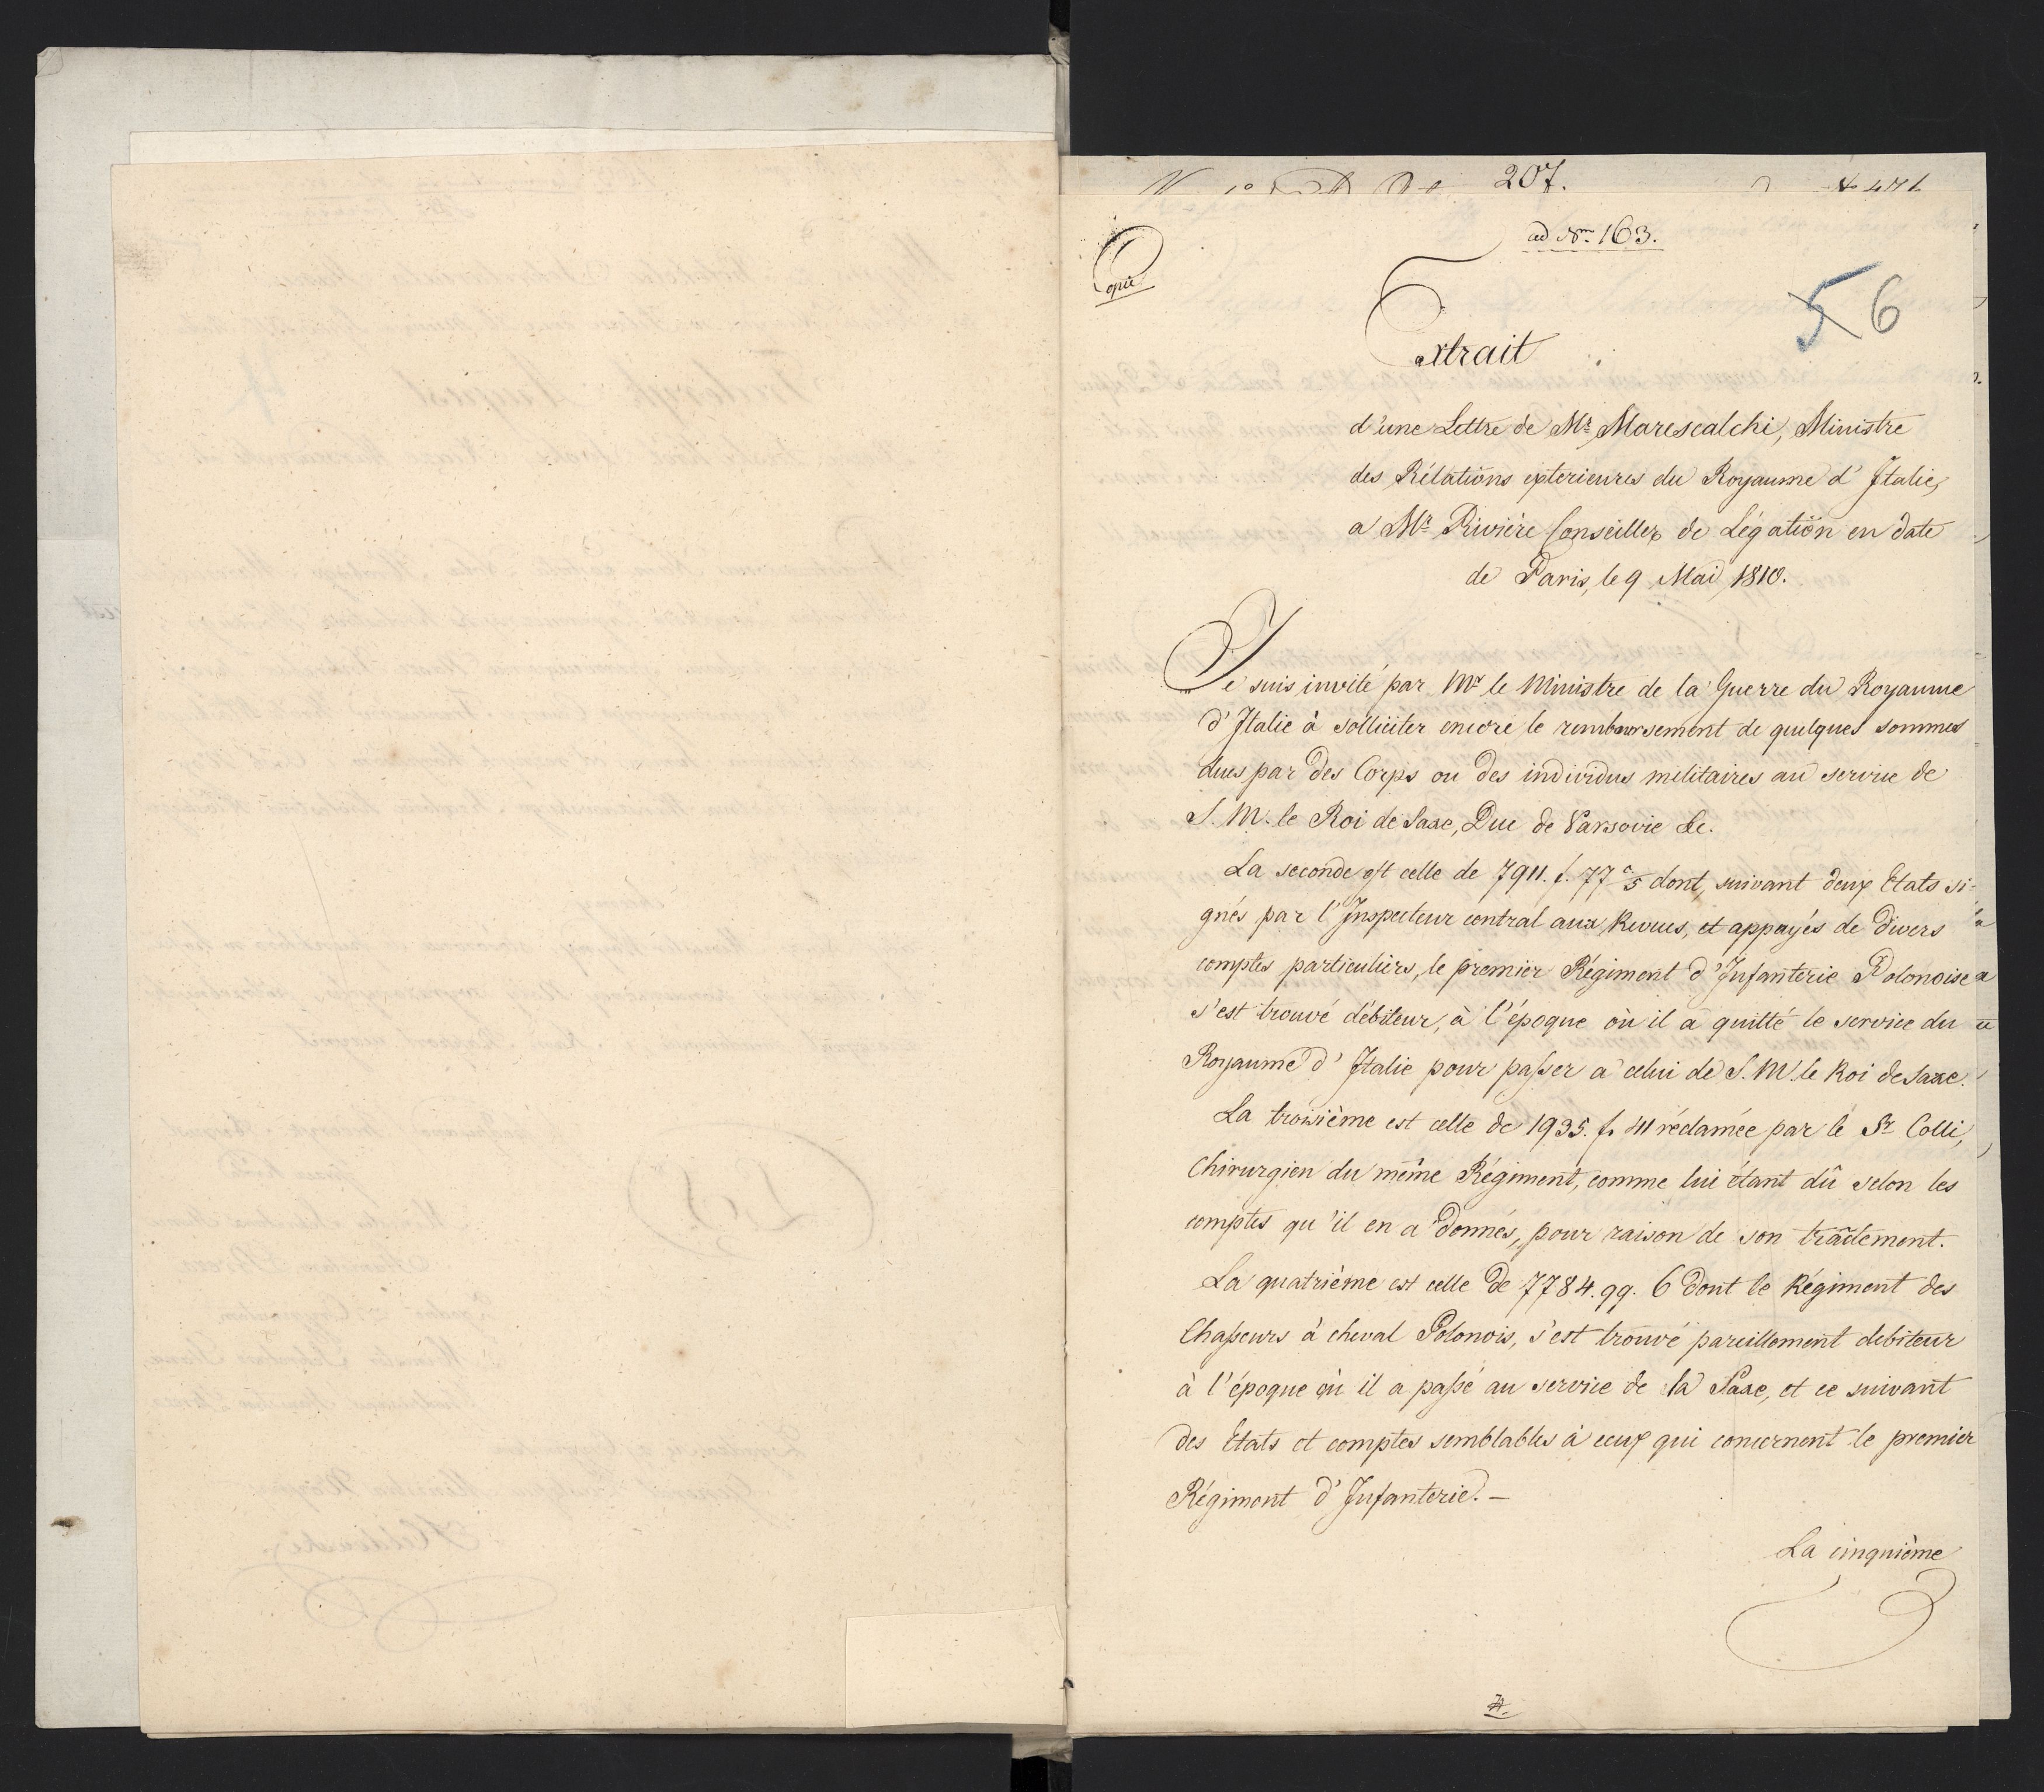 207.
ad Nrm 163.
Copie
56
Extrait
d'une Lettre de Mr Marescalchi, Ministre
des Rélations exterieures du Royaume d'Italie,
a Mr Rivière Conseiller de Légation en date
de Paris, le 9 Mai 1810.
Je suis invité par Mr le Ministre de la Guerre du Royaume
d'Italie à solliciter encore le remboursement de quelques sommes
dues par des Corps ou des individus militaires au service de
S. M. le Roi de Saxe, Duc de Varsovie &c.
La seconde est celle de 7911. f. 77 c 5 dont, suivant deux Etats si-
gnés par l'Inspecteur central aux Revues, et appayés de divers
comptes particuliers, le premier Régiment d'Infanterie Polonoise
s'est trouvé débiteur, à l'époque où il a quitté le service du
Royaume d'Italie pour passer a celui de S. M. le Roi de Saxe.
La troisième est celle de 1935. f. 41 réclamée par le Sr Colli,
Chirurgien du même Régiment, comme lui étant dû selon les
comptes qu'il en a donnés, pour raison de son traitement.
La quatrième est celle de 7784. 99. 6 dont le Régiment des
Chasseurs à cheval Polonois, s'est trouvé pareillement debiteur
à l'époque où il a passé au service de la Saxe, et ce suivant
des Etats et comptes semblables à ceux qui concernent le premier
Régiment d'Infanterie. —
La cinquième